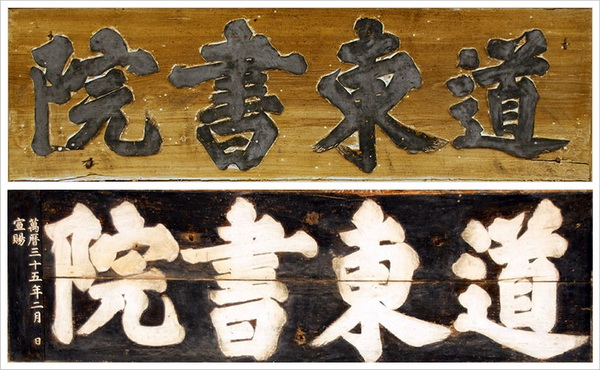 道東書院
道東書院
萬曆三十五年二月 日
宣賜